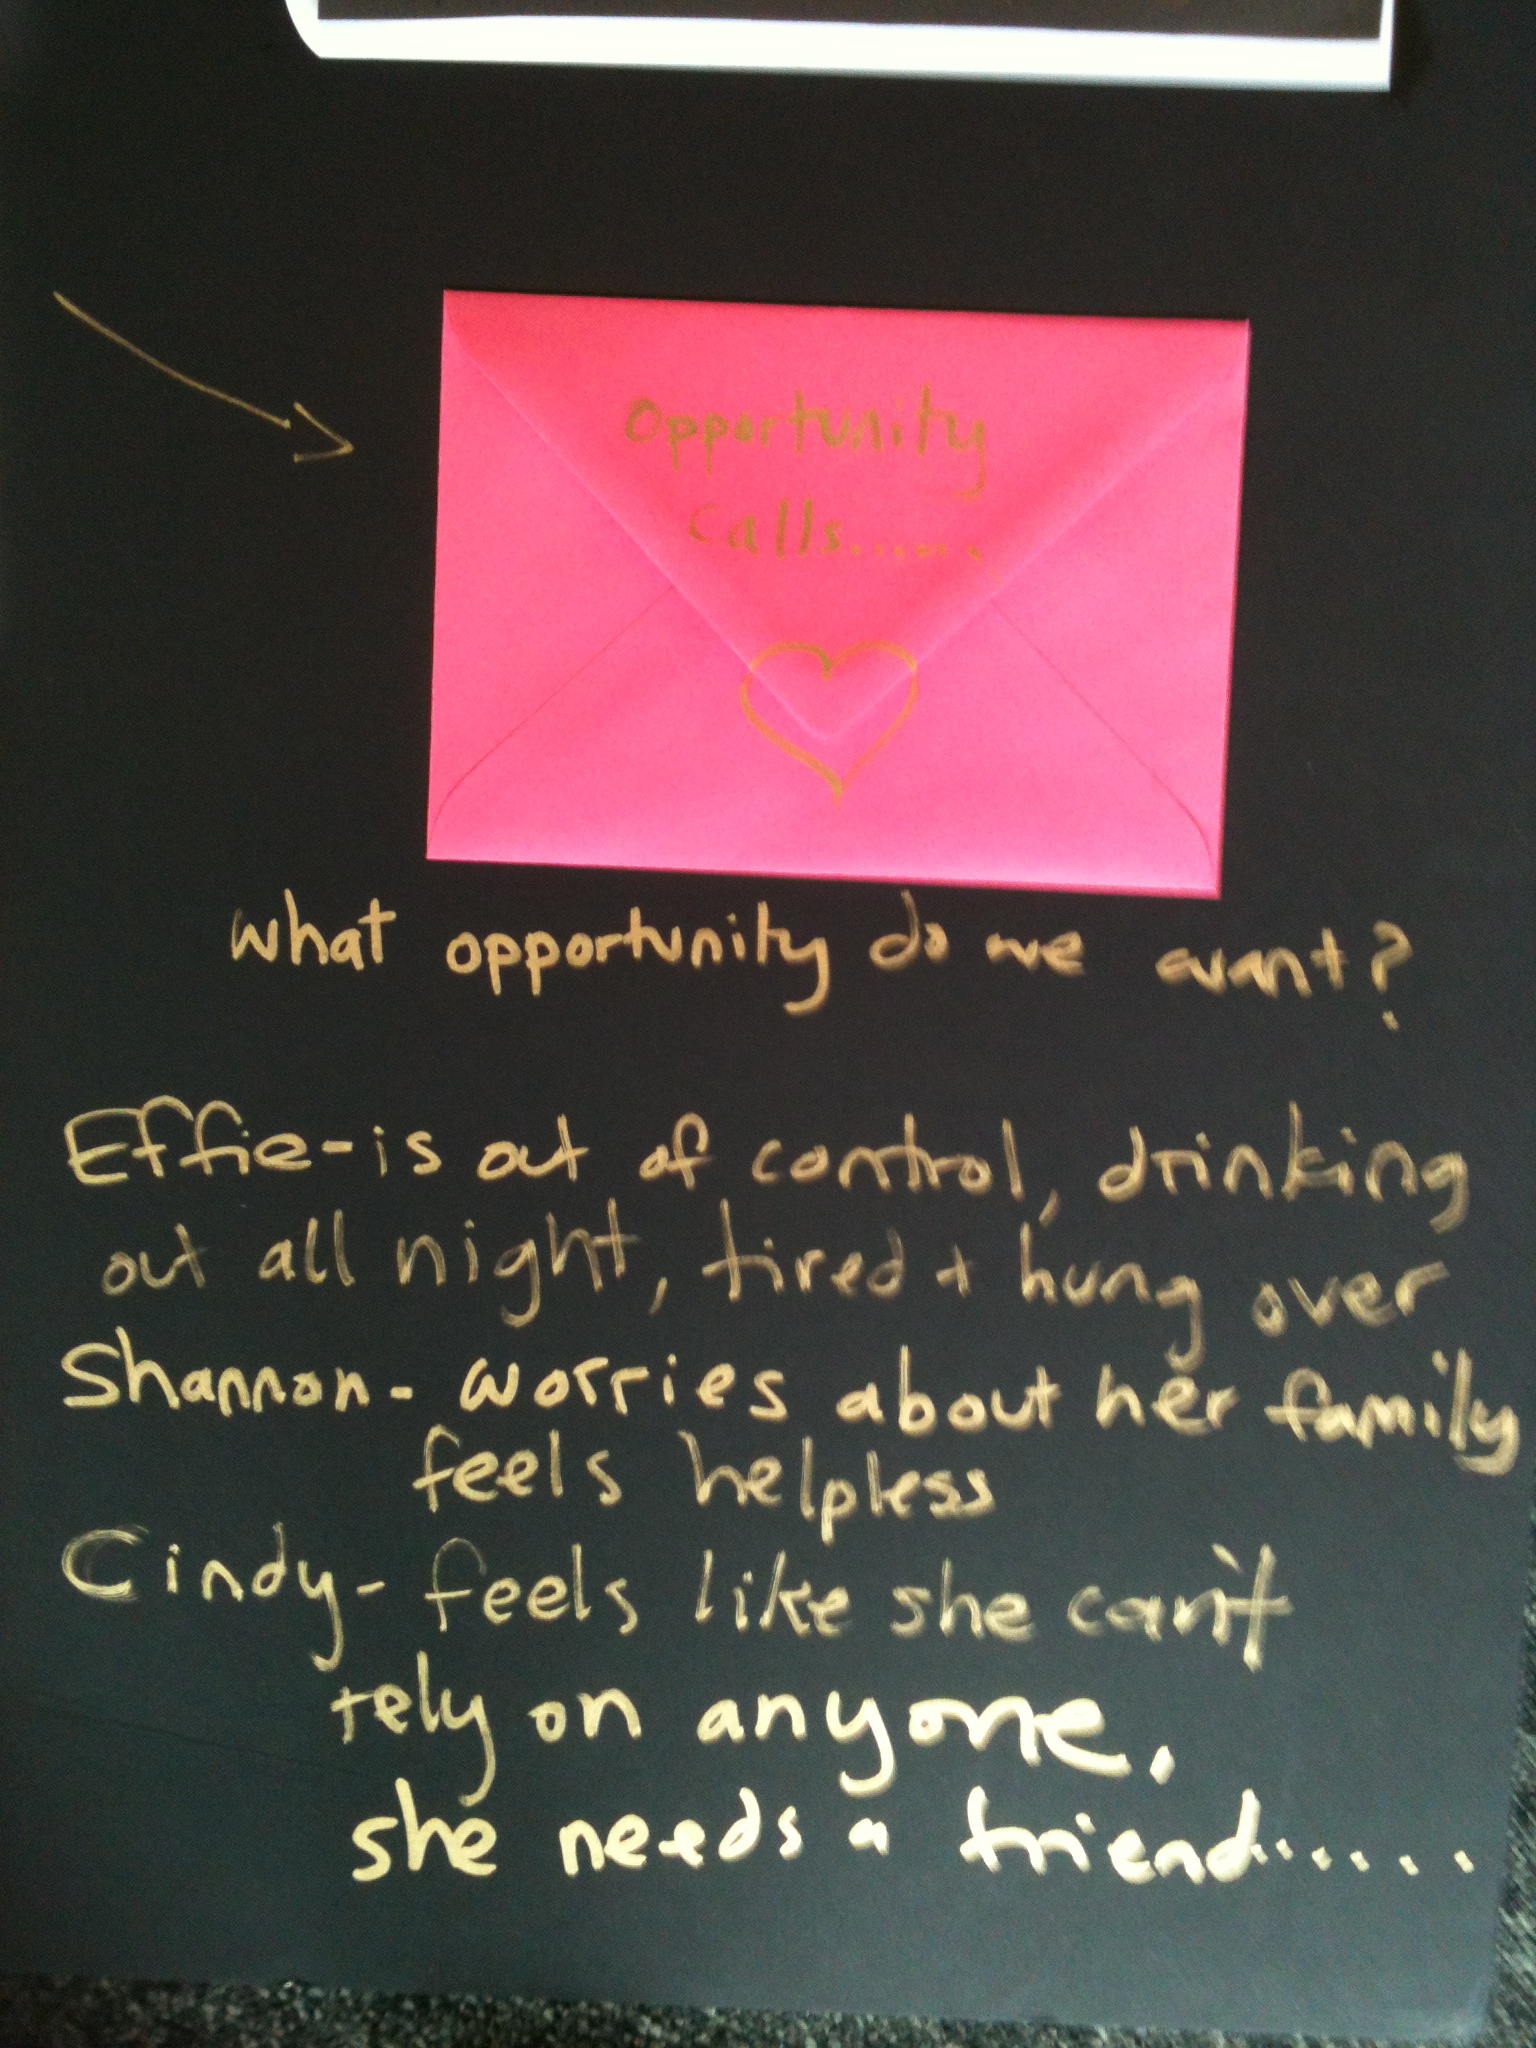 Opportunity
Calls.......
what opportunity do we want?
Effie-is out of control, drinking
out all night, tired + hung over
Shannon- worries about her family
feels helpless
Cindy- feels like she can't
rely on anyone.
she needs a friend.......